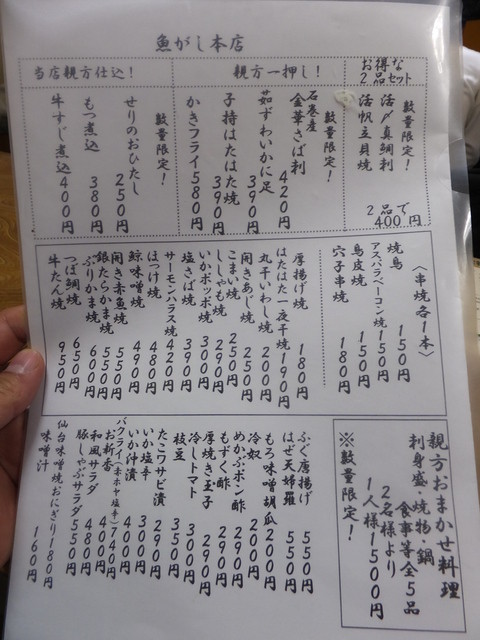 魚がし本店
お得な
2品セット
数量限定!
活〆真鯛刺
活帆立貝焼
2品で
400円
親方一押し!
数量限定!
石巻産
金華さば刺 420円
茹ずわいかに足 390円
子持はたはた焼 390円
かきフライ 580円
当店親方仕込!
数量限定!
せりのおひたし 250円
もつ煮込 380円
牛すじ煮込 400円
〈串焼各1本〉
焼鳥 150円
アスパラベーコン焼 150円
鳥皮焼 150円
穴子串焼 180円
厚揚げ焼 180円
はたはた一夜干 190円
丸干いわし焼 200円
開きあじ焼 250円
こまい焼 250円
ししゃも焼 290円
いかポッポ焼 300円
塩さば焼 390円
サーモンハラス焼 420円
ほっけ焼 480円
鯨味噌焼 490円
開き赤魚焼 550円
銀たらかま焼 550円
ぶりかま焼 600円
つぼ鯛焼 650円
牛たん焼 950円
親方おまかせ料理
刺身盛・焼物・鍋
食事等全5品
2名様より
1人様1500円
※数量限定!
ふぐ唐揚げ 550円
はぜ天婦羅 550円
もろ味噌胡瓜 200円
冷奴 200円
めかぶポン酢 290円
もずく酢 290円
厚焼き玉子 290円
冷しトマト 350円
枝豆 300円
たこワサビ漬 290円
いか塩辛 300円
いか沖漬 400円
バクライ(ホヤ塩辛) 740円
お新香 400円
和風サラダ 480円
豚しゃぶサラダ 550円
仙台味噌焼おにぎり 180円
味噌汁 160円